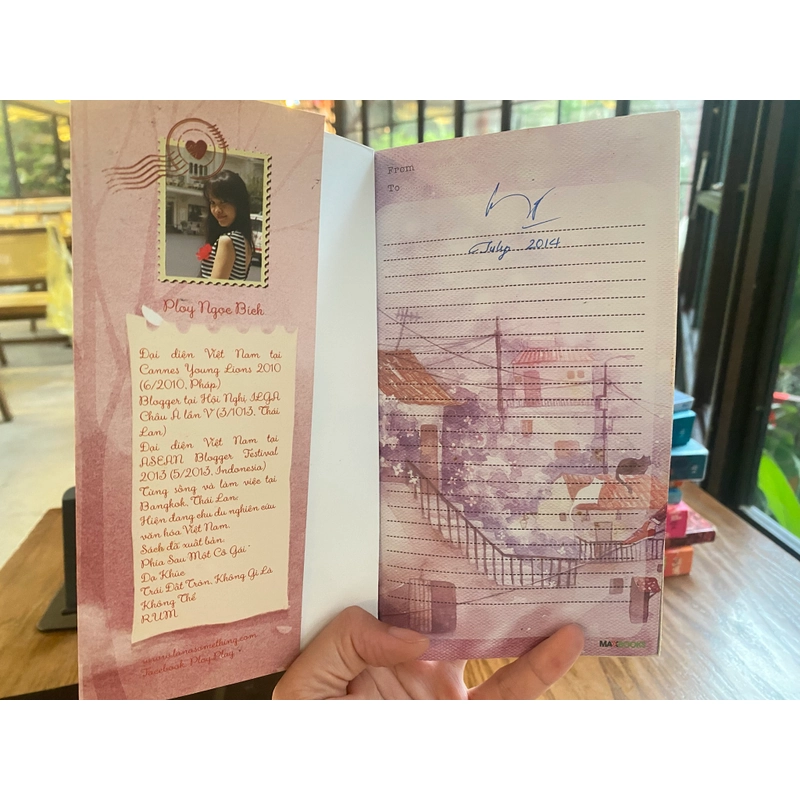 Ploy Ngọc Bích
Đại diện Việt Nam tại
Cannes Young Lions 2010
(6/2010, Pháp)
Blogger tại Hội Nghị ILGA
Châu Á lần V (3/1013, Thái
Lan)
Đại diện Việt Nam tại
ASEAN Blogger Festival
2013 (5/2013, Indonesia)
Từng sống và làm việc tại
Bangkok, Thái Lan.
Hiện đang chu du nghiên cứu
văn hóa Việt Nam.
Sách đã xuất bản:
Phía Sau Một Cô Gái -
Dạ Khúc
Trái Đất Tròn, Không Gì Là
Không Thể
RUM
Facebook: Ploy.Ploy
From
To
July 2014